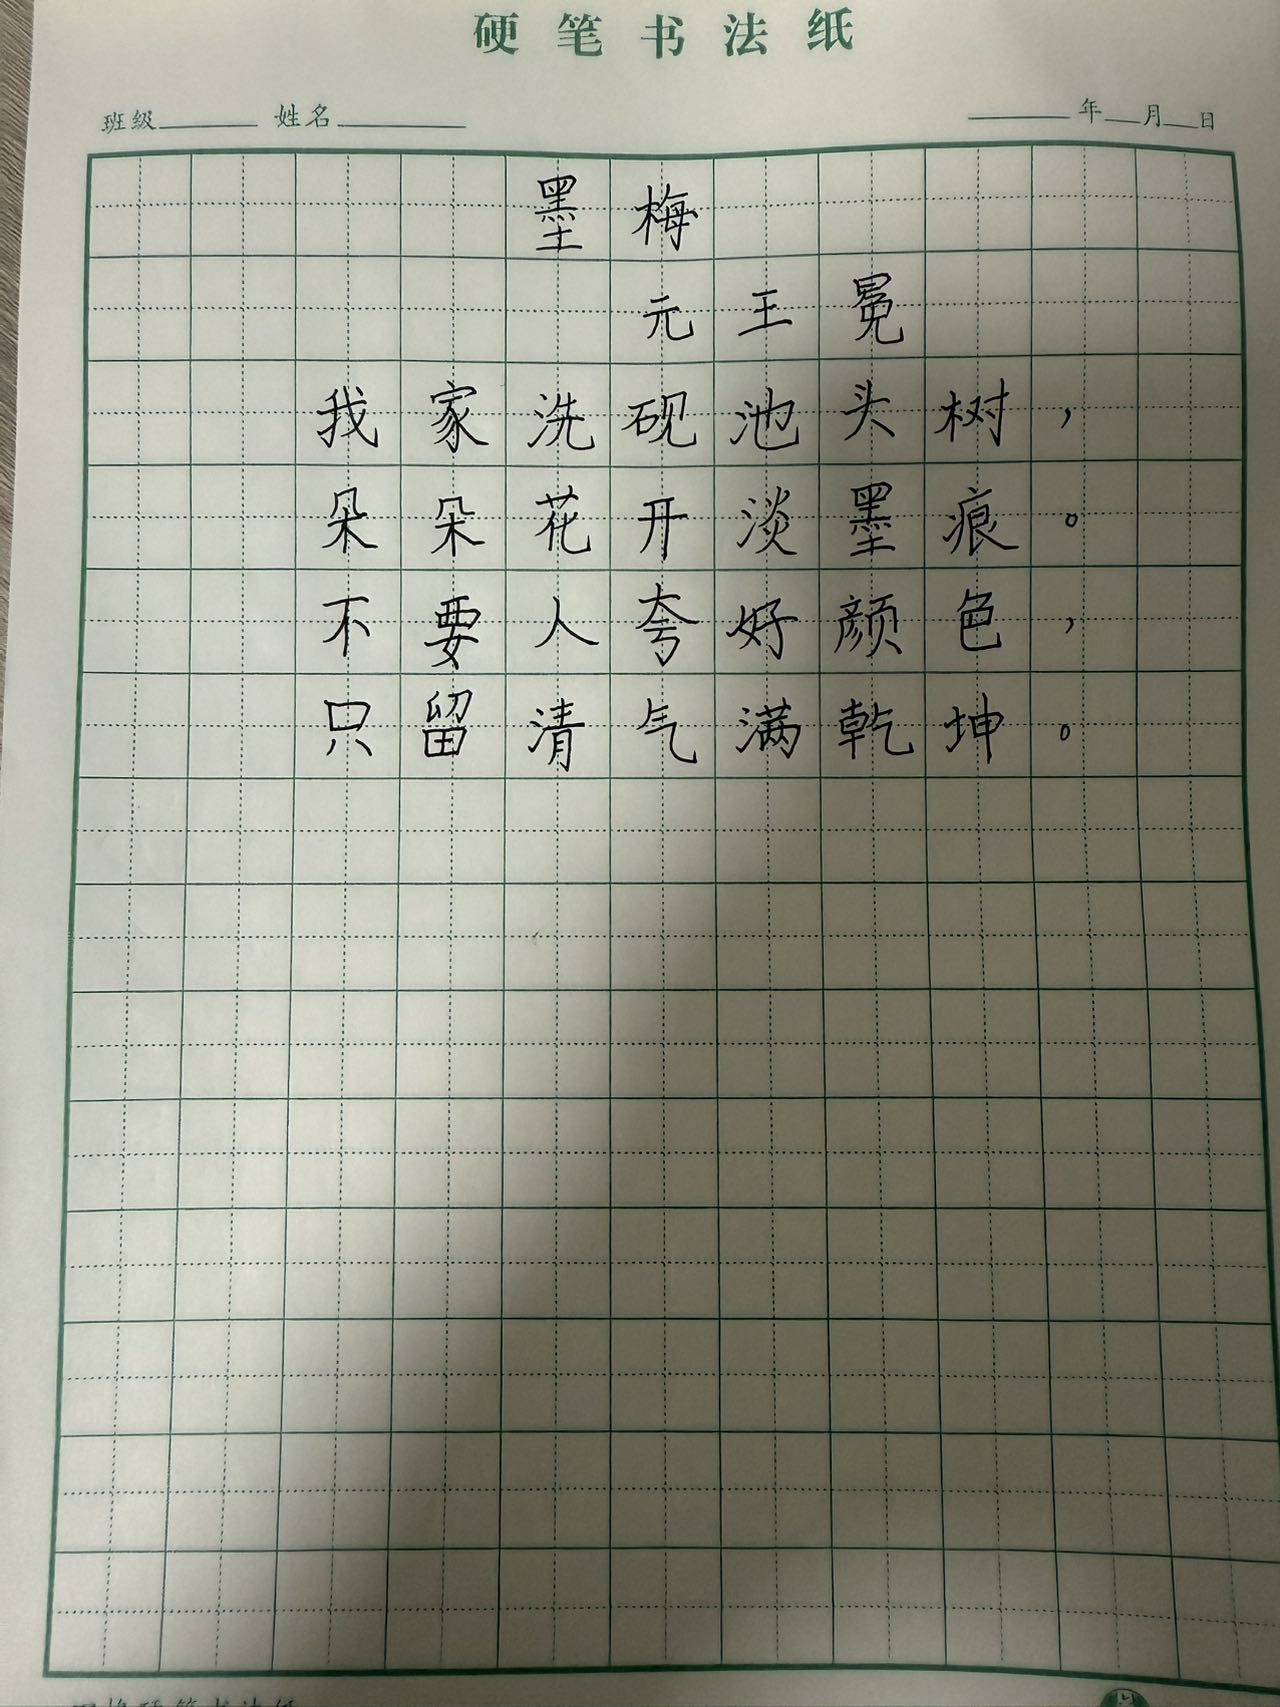 硬笔书法纸
班级 姓名 年 月 日
墨梅
元 王冕
我家洗砚池头树，
朵朵花开淡墨痕。
不要人夸好颜色，
只留清气满乾坤。